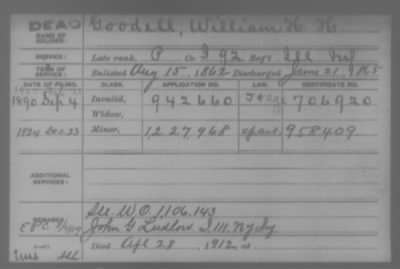 DEAD
NAME OF SOLDIER: Goodell, William H. H.
SERVICE: Late rank, P Co. I, 92 Reg't Ill Inf
TERM OF SERVICE: Enlisted Aug 15, 1862 Discharged June 21, 1865
DATE OF FILING. CLASS. APPLICATION NO. LAW. CERTIFICATE NO.
1890 Sep 4 Invalid, 942660 706920
Widow,
1924 Dec 23 Minor, 1,227,968 958409
ADDITIONAL SERVICES:
See W.O. 1,106,143
REMARKS: John G Ludlow I 111. NY Inf
Died Apl 28, 1912, at
Ills